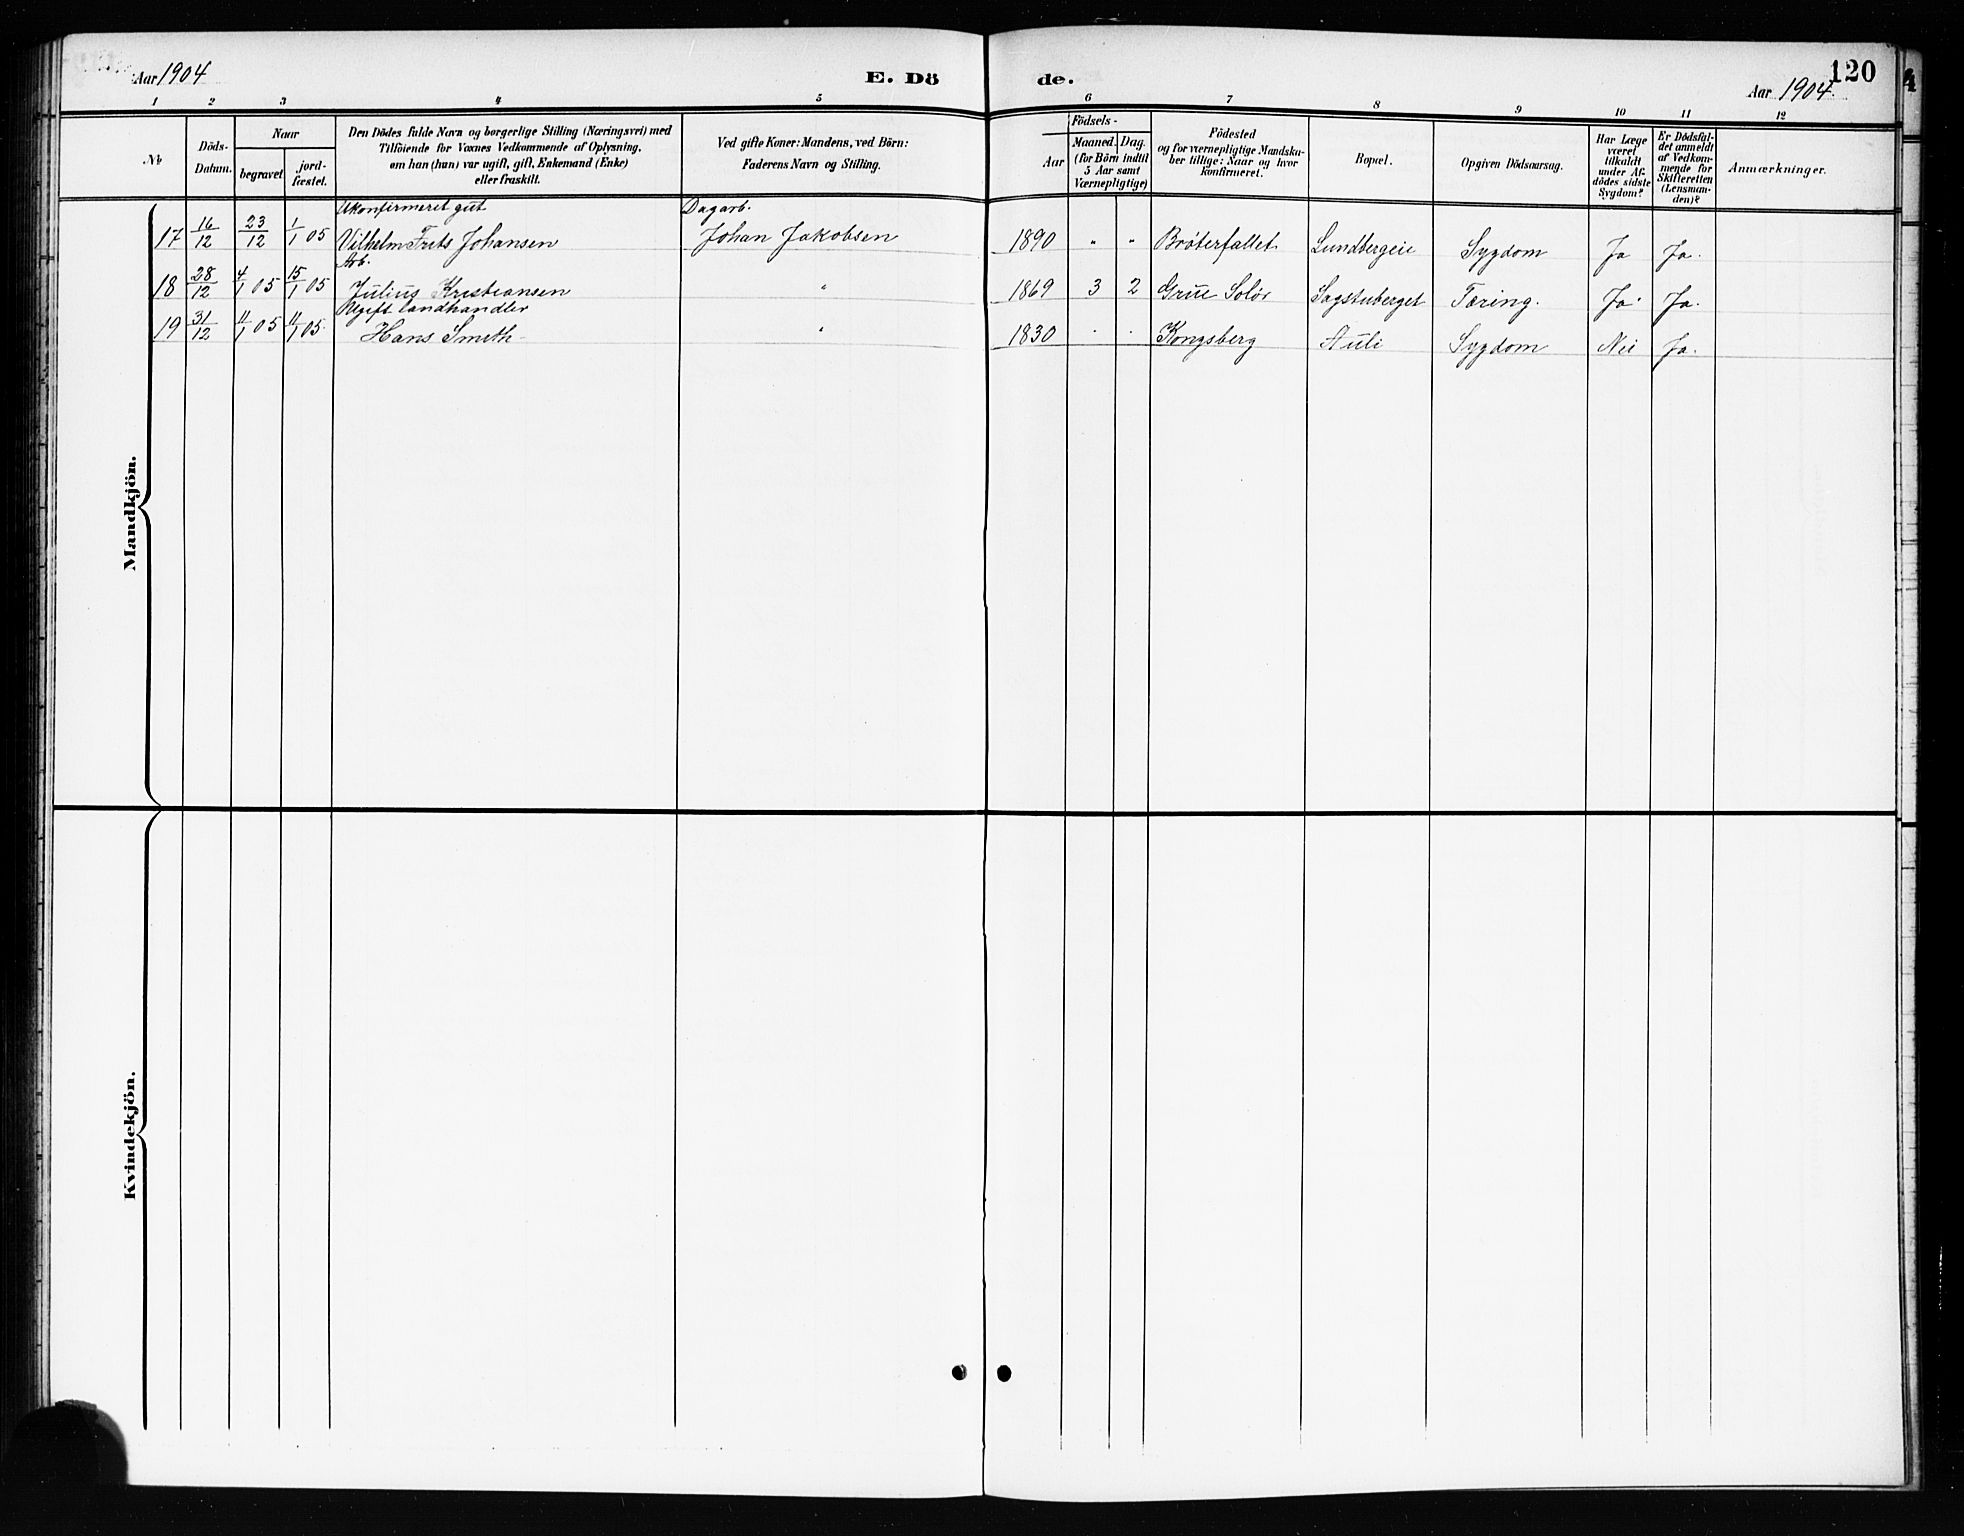 Aar 1904
E. Dö
de.
Aar 1904.
120
1 2 3 4 5
6 7 8 9 10 11 12
No
Döds-
Datum.
Naar
begravet
jord-
fæstet.
Den Dödes fulde Navn og borgerlige Stilling (Næringsvei) med
Tilföiende for Voxnes Vedkommende af Oplysning,
om han (hun) var ugift, gift, Enkemand (Enke)
eller fraskilt.
Ved gifte Koner: Mandens, ved Börn:
Faderens Navn og Stilling.
Födsels-
Aar
Maaned. Dag.
(for Börn indtil
5 Aar samt
Værnepligtige)
Födested
og for værnepligtige Mandska-
ber tillige: Naar og hvor
konfirmeret.
Bopæl.
Opgiven Dödsaarsag.
Har Læge
været
tilkaldt
under Af-
dödes sidste
Sygdom?
Er Dödsfal-
det anmeldt
af Vedkom-
mende for
Skifteretten
(Lensman-
den)?
Anmærkninger.
Mandkjön.
Ukonfirmeret gut Dagarb.
17 16/12 23/12 1/1 05 Vilhelm Frits Johansen Johan Jakobsen 1890 " " Brøterfallet Lundbergeie Sygdom Ja Ja.
Arb.
18 28/12 4/1 05 15/1 05 Julius Kristiansen " 1869 3 2 Grue Solør Sagstuberget Tæring. Ja. Ja.
Ugift landhandler
19 31/12 11/1 05 11/1 05. Hans Smith " 1830 . . Kongsberg Auli Sygdom Nei Ja.
Kvindekjön.